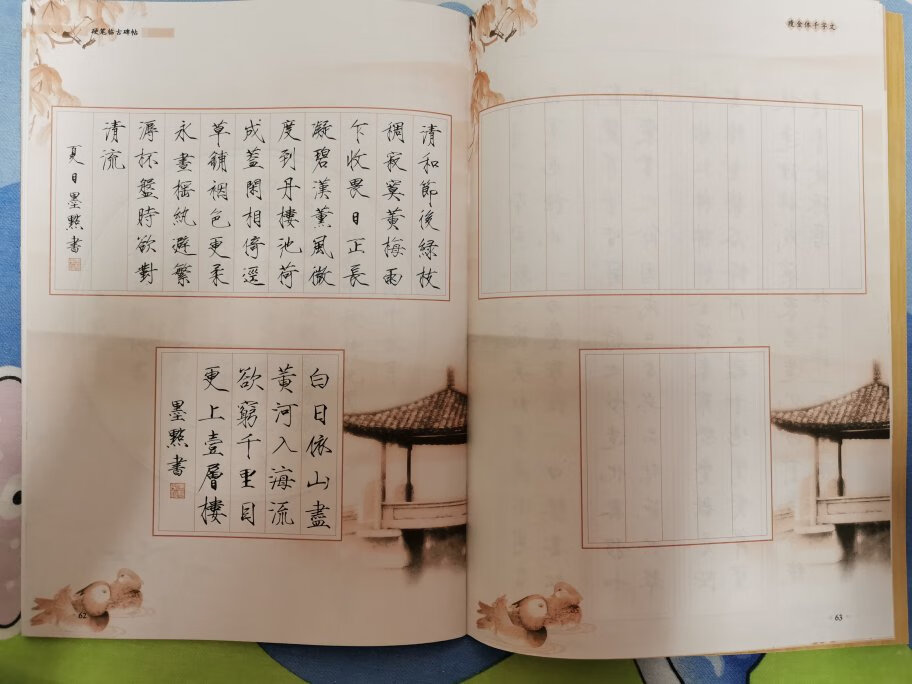 硬笔临古碑帖
清和節後緑枝
稠寂寞黄梅雨
乍收畏日正長
凝碧漢薰風微
度到丹樓池荷
成蓋閑相倚逕
草鋪裀色更柔
永晝摇紈避繁
溽杯盤時欲對
清流
夏日墨點書
白日依山盡
黄河入海流
欲窮千里目
更上壹層樓
墨點書
62
瘦金体千字文
63